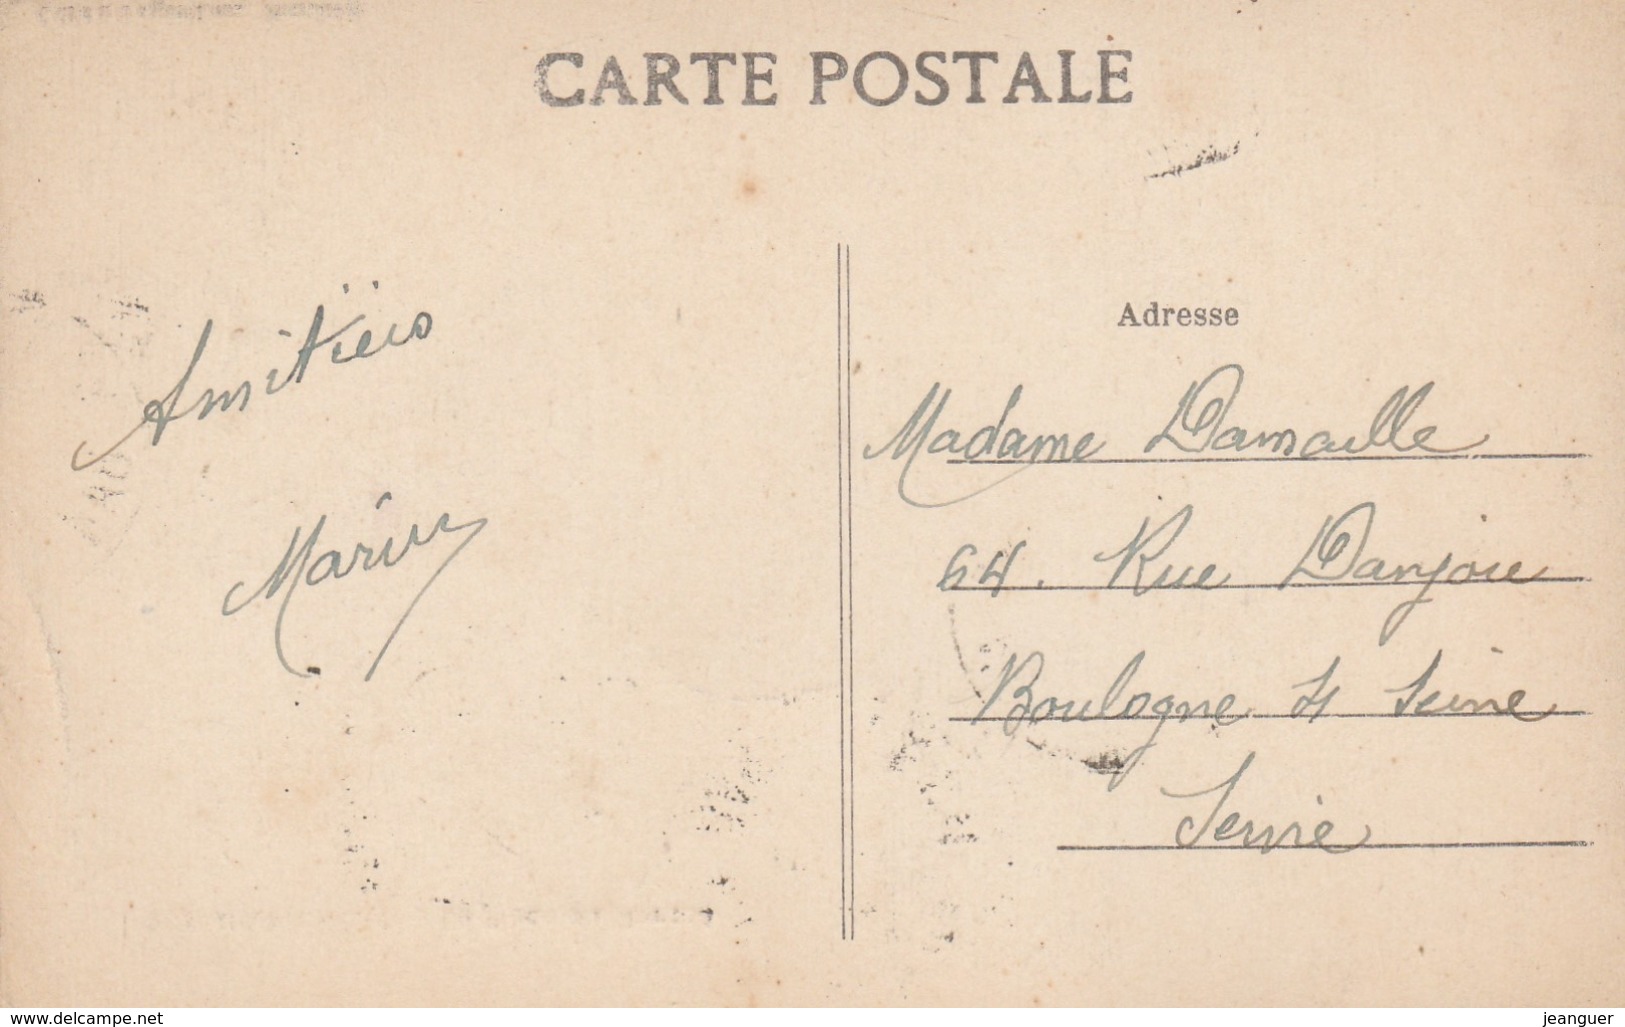 CARTE POSTALE
Amitïés
Adresse
Madame Damaille
64. Rue Danjou
Boulogne s/ Seine
Seine
www.delcampe.net
jeanguer